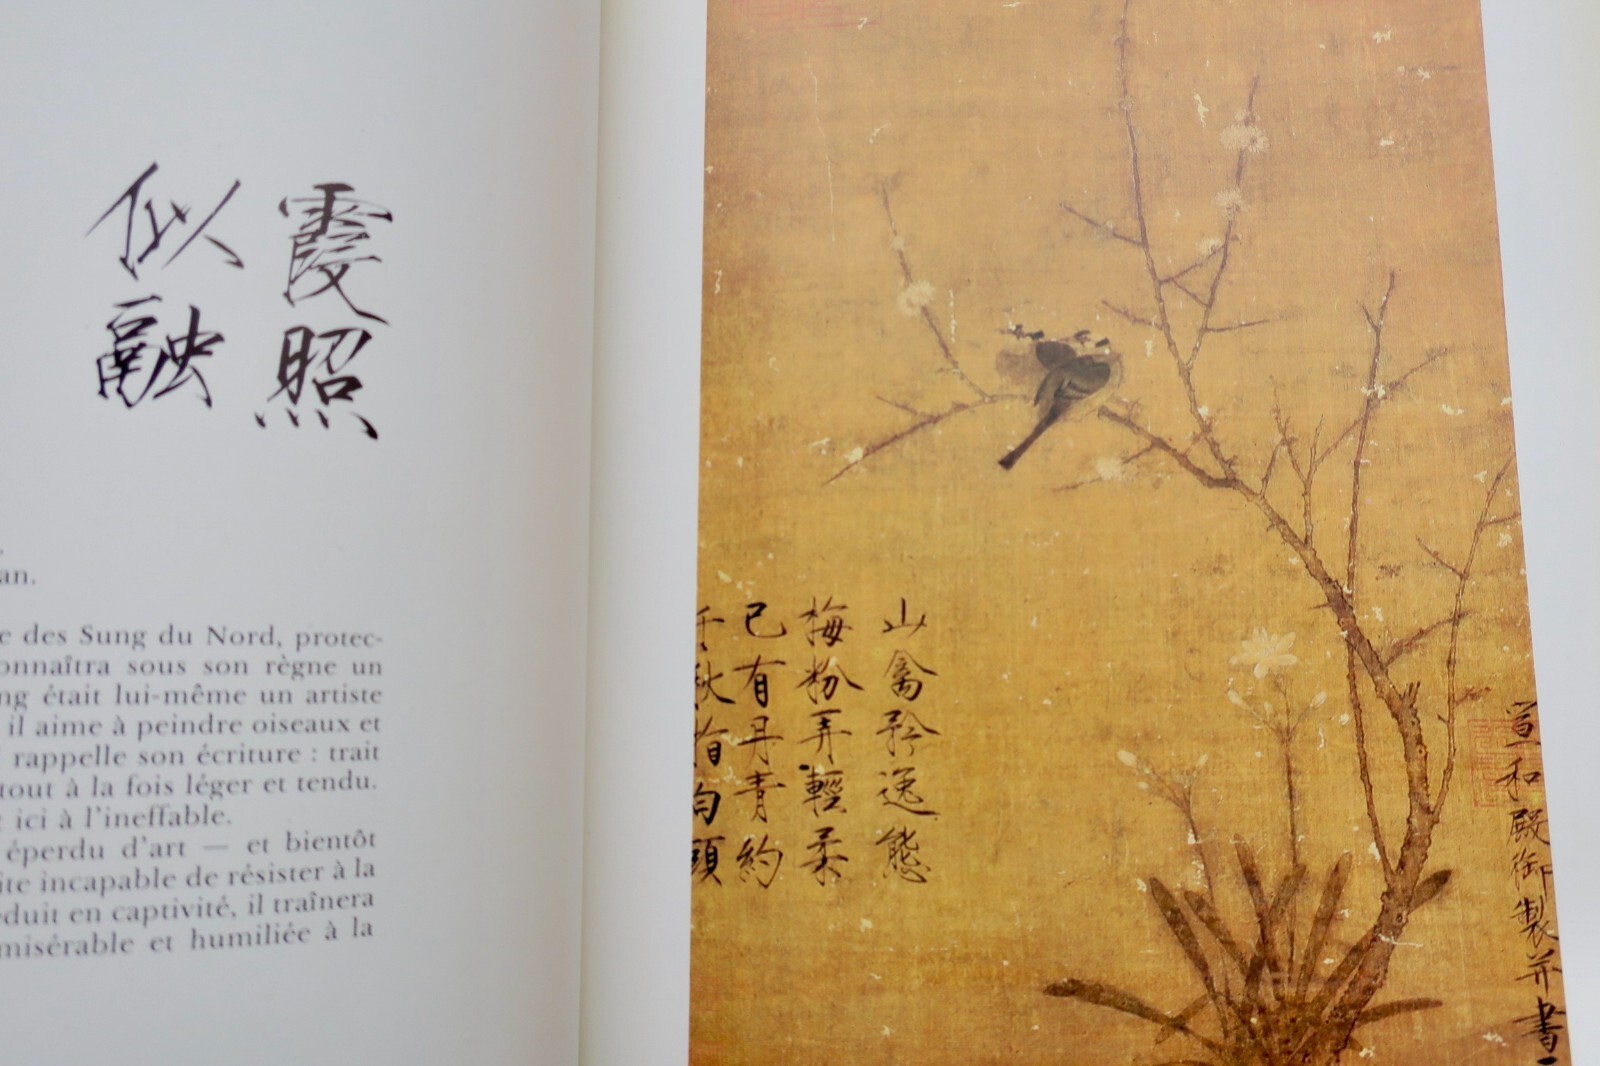 霞照
似融
an.
e des Sung du Nord, protec-
onnaîtra sous son règne un
ng était lui-même un artiste
il aime à peindre oiseaux et
rappelle son écriture : trait
tout à la fois léger et tendu.
t ici à l'ineffable.
éperdu d'art — et bientôt
ite incapable de résister à la
éduit en captivité, il traînera
misérable et humiliée à la
宣和殿御製并書
山禽矜逸態
梅粉弄輕柔
已有丹青約
千秋指白頭